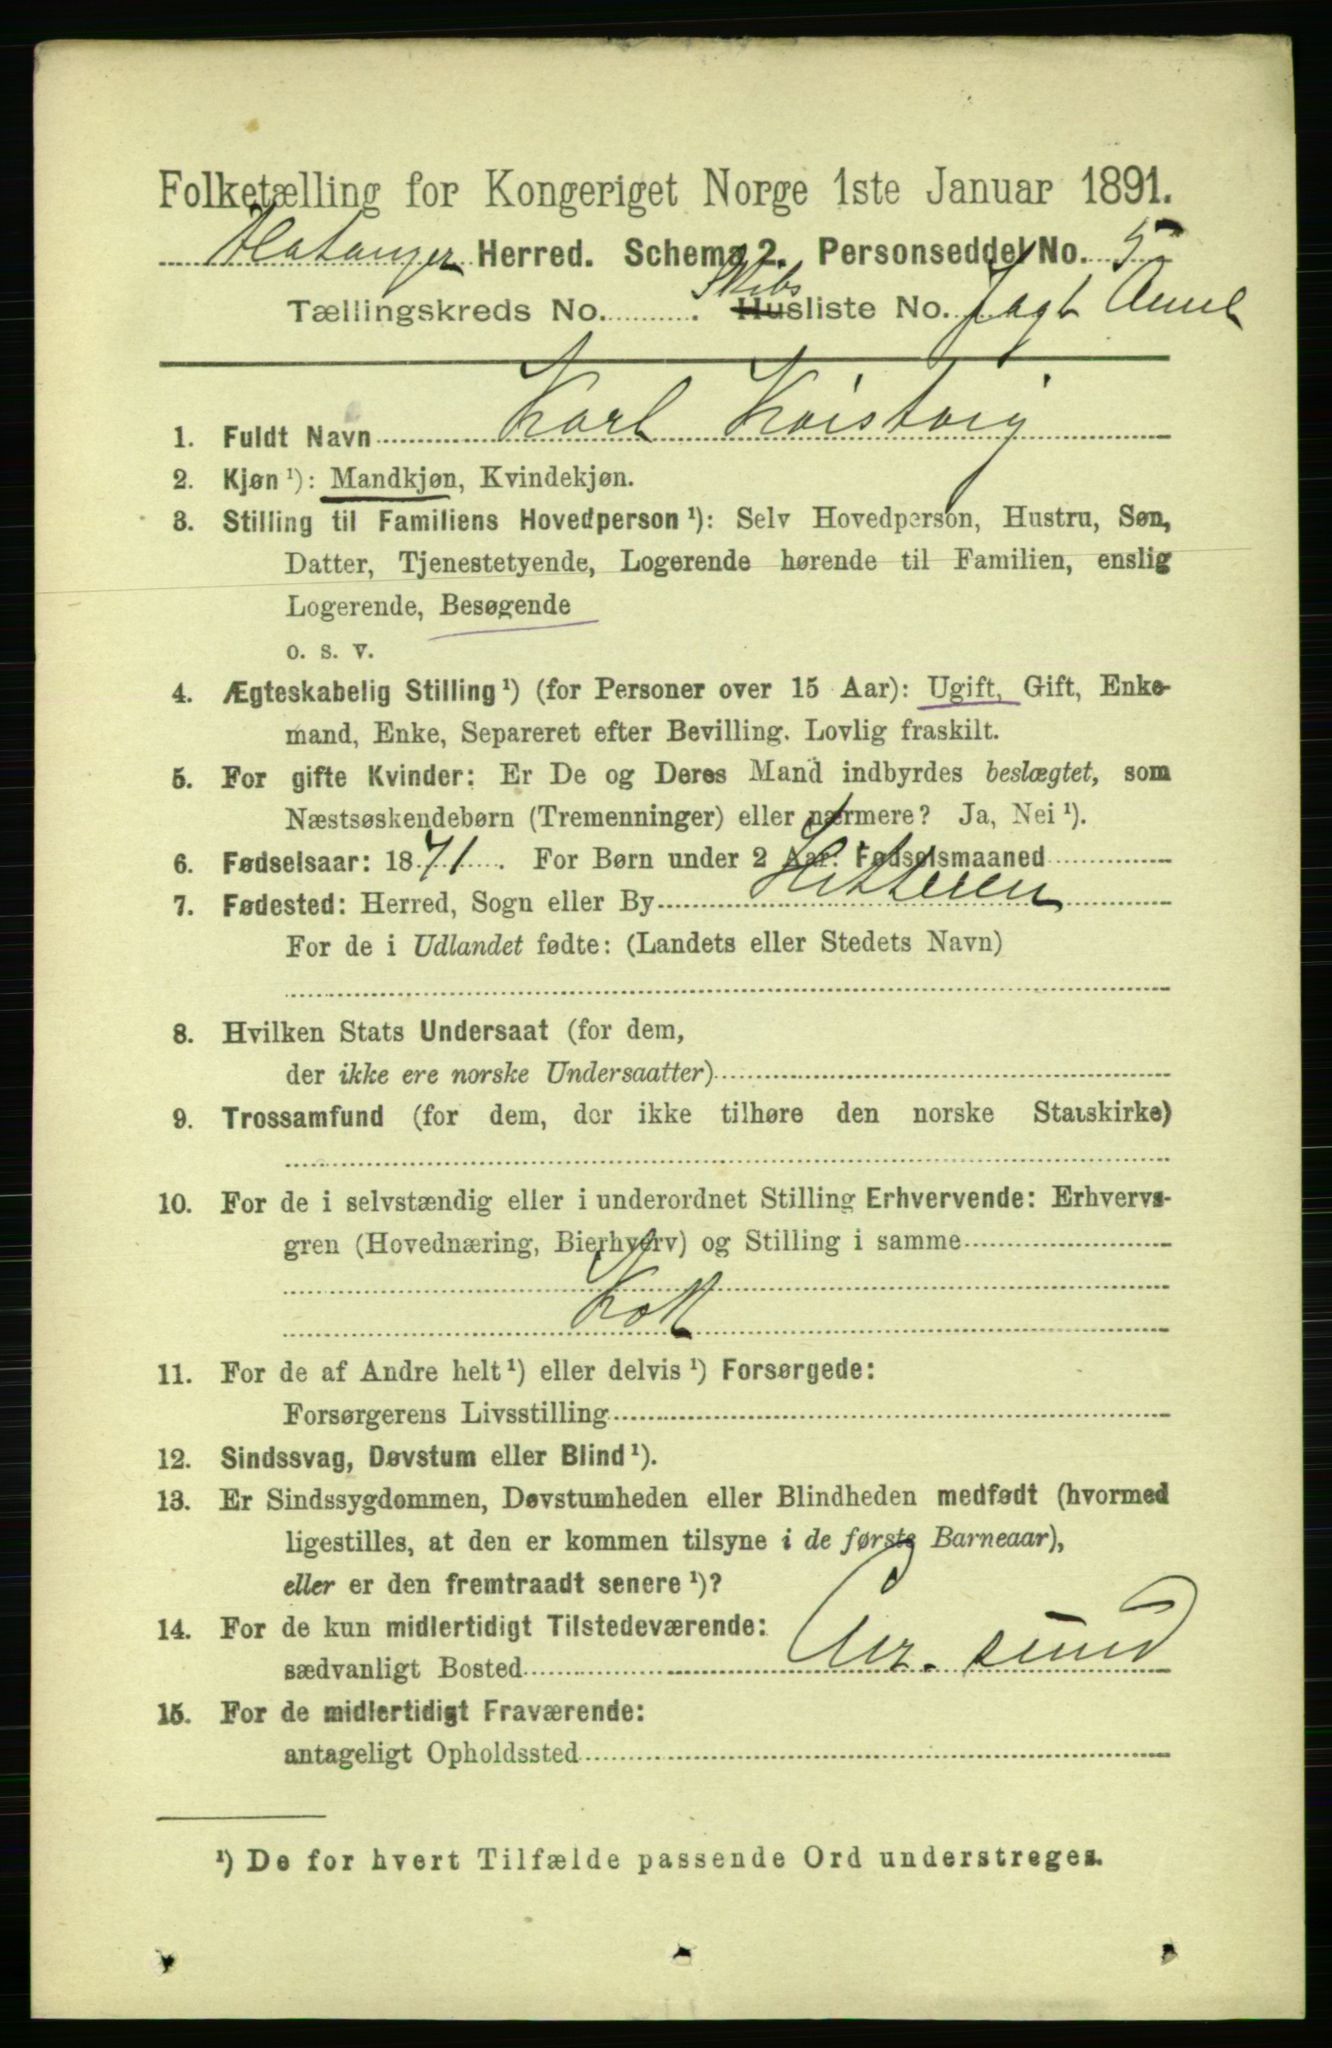 Folketælling for Kongeriget Norge 1ste Januar 1891.
Flatanger Herred. Schema 2. Personseddel No. 5
Skibs
Tællingskreds No. . Husliste No. Jagt
1. Fuldt Navn Karl
2. Kjøn ¹): Mandkjøn, Kvindekjøn.
3. Stilling til Familiens Hovedperson ¹): Selv Hovedperson, Hustru, Søn,
Datter, Tjenestetyende, Logerende hørende til Familien, enslig
Logerende, Besøgende
o. s. v.
4. Ægteskabelig Stilling ¹) (for Personer over 15 Aar): Ugift, Gift, Enke-
mand, Enke, Separeret efter Bevilling. Lovlig fraskilt.
5. For gifte Kvinder: Er De og Deres Mand indbyrdes beslægtet, som
Næstsøskendebørn (Tremenninger) eller nærmere? Ja, Nei ¹).
6. Fødselsaar: 1871. For Børn under 2 Aar: Fødselsmaaned
7. Fødested: Herred, Sogn eller By Hitteren
For de i Udlandet fødte: (Landets eller Stedets Navn)
8. Hvilken Stats Undersaat (for dem,
der ikke ere norske Undersaatter)
9. Trossamfund (for dem, der ikke tilhøre den norske Statskirke)
10. For de i selvstændig eller i underordnet Stilling Erhvervende: Erhvervs-
gren (Hovednæring, Bierhverv) og Stilling i samme
Kok
11. For de af Andre helt ¹) eller delvis ¹) Forsørgede:
Forsørgerens Livsstilling
12. Sindssvag, Døvstum eller Blind ¹).
13. Er Sindssygdommen, Døvstumheden eller Blindheden medfødt (hvormed
ligestilles, at den er kommen tilsyne i de første Barneaar),
eller er den fremtraadt senere ¹)?
14. For de kun midlertidigt Tilstedeværende:
sædvanligt Bosted Chr. sund
15. For de midlertidigt Fraværende:
antageligt Opholdssted
¹) De for hvert Tilfælde passende Ord understreges.